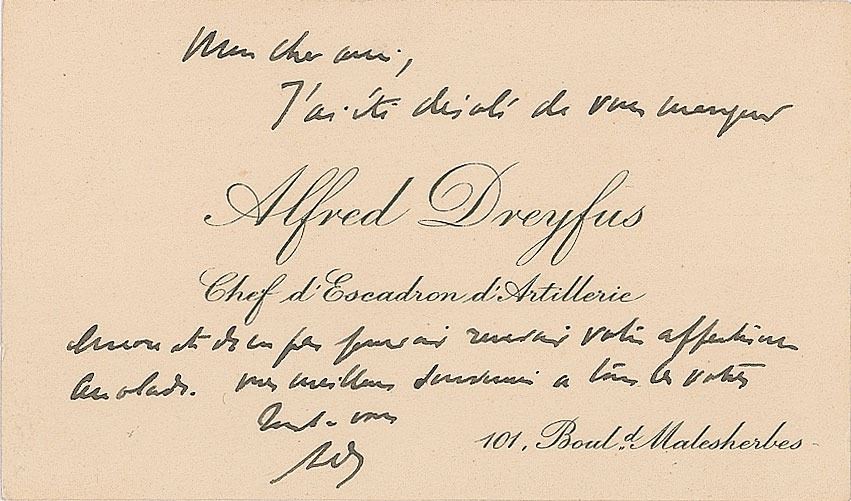 Mon cher ami,
J'ai été désolé de vous manquer
Alfred Dreyfus
Chef d'Escadron d'Artillerie
encore et de ne pas pouvoir recevoir votre affectueuse
accolade. mes meilleurs souvenirs à tous les vôtres
Tout à vous
101, Boul.d Malesherbes